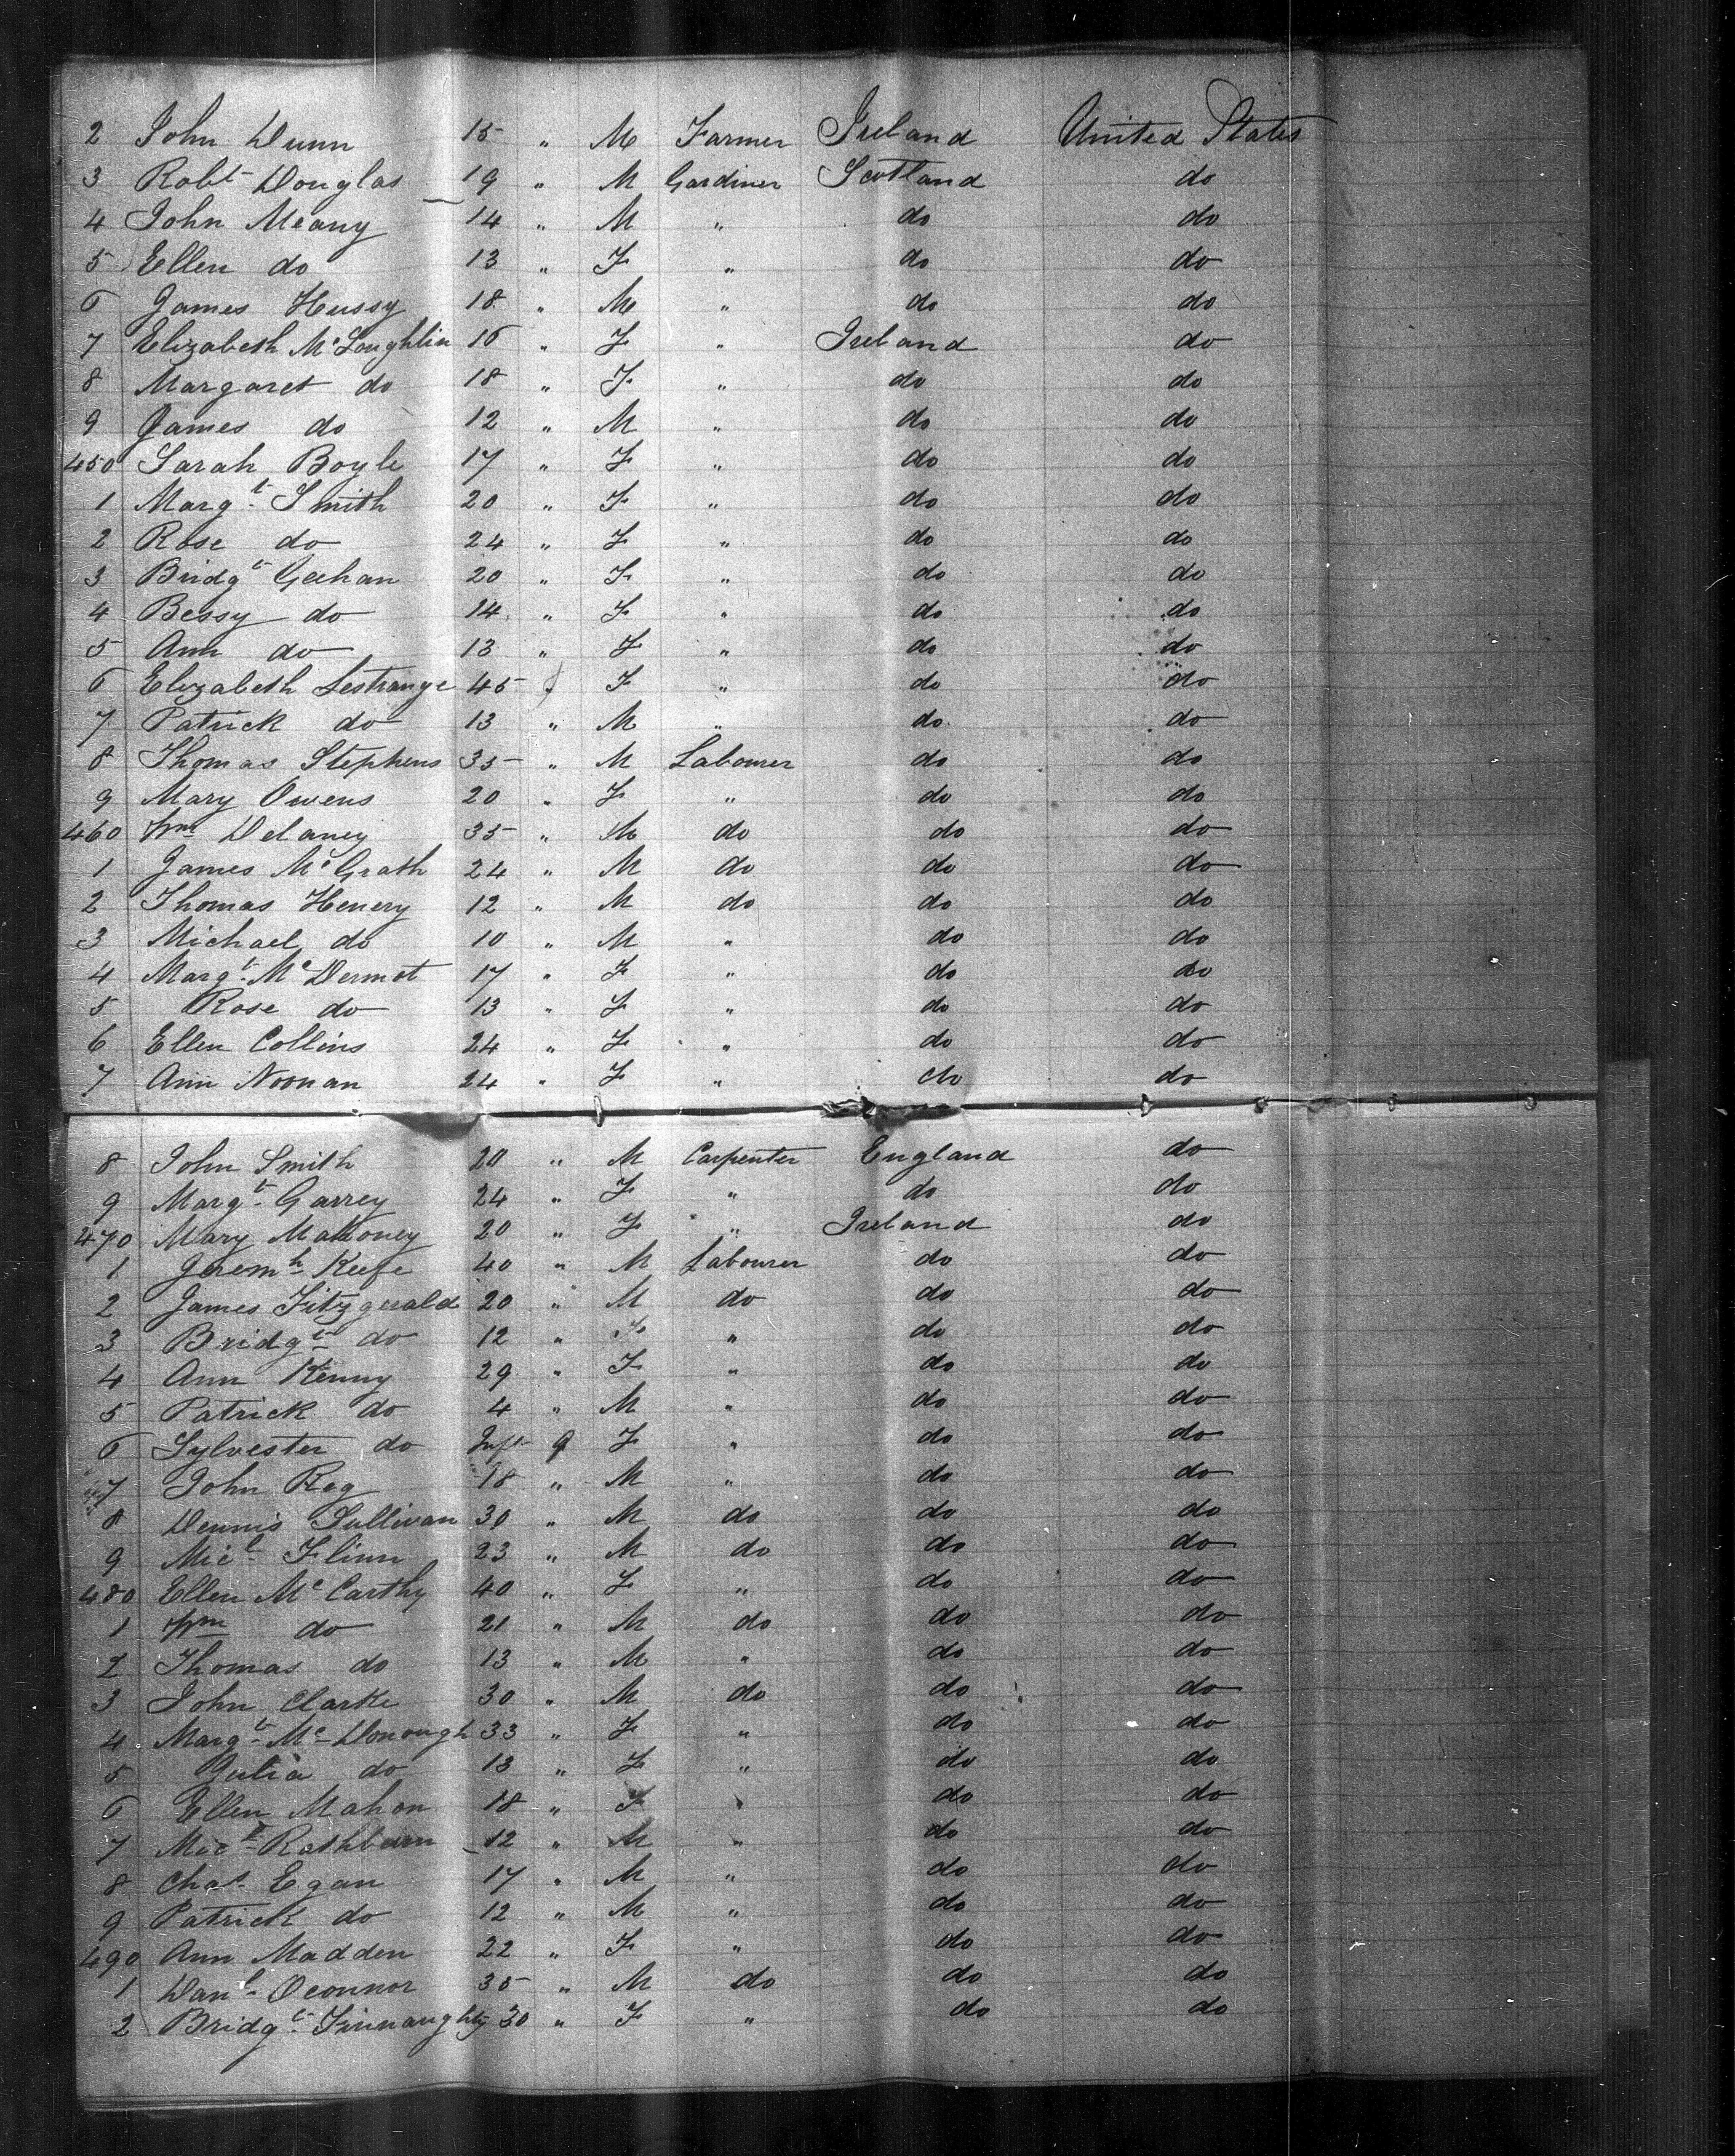 2 John Dunn 15 " M Farmer Ireland United States
3 Robt Douglas 19 " M Gardiner Scotland do
4 John Meany 14 " M " do do
5 Ellen do 13 " F " do do
6 James Hussy 18 " M " do do
7 Elizabeth McLoughlin 16 " F " Ireland do
8 Margaret do 18 " F " do do
9 James do 12 " M " do do
450 Sarah Boyle 17 " F " do do
1 Margt Smith 20 " F " do do
2 Rose do 24 " F " do do
3 Bridgt Geehan 20 " F " do do
4 Bessy do 14 " F " do do
5 Ann do 13 " F " do do
6 Elizabeth Lestrange 45 " F " do do
7 Patrick do 13 " M " do do
8 Thomas Stephens 35 " M Labourer do do
9 Mary Owens 20 " F " do do
460 Wm Delaney 35 " M do do do
1 James McGrath 24 " M do do do
2 Thomas Henery 12 " M do do do
3 Michael do 10 " M " do do
4 Margt McDermot 17 " F " do do
5 Rose do 13 " F " do do
6 Ellen Collins 24 " F " do do
7 Ann Noonan 24 " F " do do
8 John Smith 20 " M Carpenter England do
9 Margt Garrey 24 " F " do do
470 Mary Mahoney 20 " F " Ireland do
1 Jeremh Keefe 40 " M Labourer do do
2 James Fitzgerald 20 " M do do do
3 Bridgt do 12 " F " do do
4 Ann Kenny 29 " F " do do
5 Patrick do 4 " M " do do
6 Sylvester do Inft 9 F " do do
7 John Reg 18 " M " do do
8 Dennis Sullivan 30 " M do do do
9 Micl Flinn 23 " M do do do
480 Ellen McCarthy 40 " F " do do
1 Wm do 21 " M do do do
2 Thomas do 13 " M " do do
3 John Clarke 30 " M do do do
4 Margt McDonough 33 " F " do do
5 Julia do 13 " F " do do
6 Ellen Mahon 18 " F " do do
7 Micl Rathburn 12 " M " do do
8 Chas Egan 17 " M " do do
9 Patrick do 12 " M " do do
490 Ann Madden 22 " F " do do
1 Danl Oconnor 35 " M do do do
2 Bridgt Finnaughty 30 " F " do do